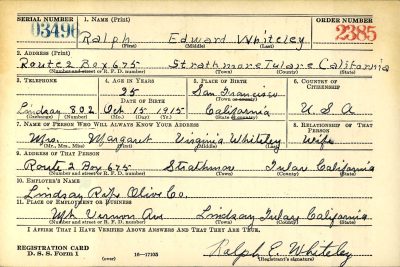 SERIAL NUMBER 1. NAME (Print) ORDER NUMBER
03496 Ralph Edward Whiteley 2385
(First) (Middle) (Last)
2. ADDRESS (Print)
Route 2 Box 675 Strathmore Tulare California
(Number and street or R. F. D. number) (Town) (County) (State)
3. TELEPHONE 4. AGE IN YEARS 5. PLACE OF BIRTH 6. COUNTRY OF CITIZENSHIP
25 San Francisco
DATE OF BIRTH (Town or county)
Lindsay 802 Oct 15 1915 California U.S.A
(Exchange) (Number) (Mo.) (Day) (Yr.) (State or country)
7. NAME OF PERSON WHO WILL ALWAYS KNOW YOUR ADDRESS 8. RELATIONSHIP OF THAT PERSON
Mrs. Margaret Virginia Whiteley Wife
(Mr., Mrs., Miss) (First) (Middle) (Last)
9. ADDRESS OF THAT PERSON
Route 2 Box 675 Strathmore Tulare California
(Number and street or R. F. D. number) (Town) (County) (State)
10. EMPLOYER'S NAME
Lindsay Ripe Olive Co.
11. PLACE OF EMPLOYMENT OR BUSINESS
Mt. Vernon Ave Lindsay Tulare California
(Number and street or R. F. D. number) (Town) (County) (State)
I AFFIRM THAT I HAVE VERIFIED ABOVE ANSWERS AND THAT THEY ARE TRUE.
REGISTRATION CARD
D. S. S. FORM 1 (over) 16—17105 Ralph E. Whiteley
(Registrant's signature)